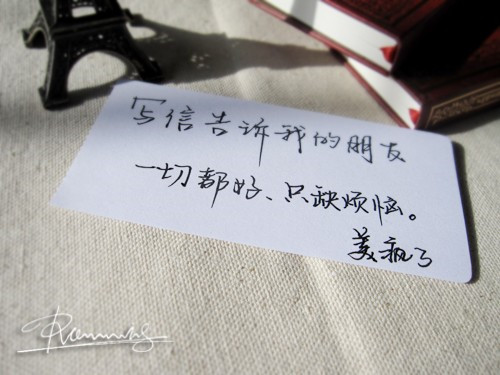 写信告诉我的朋友
一切都好、只缺烦恼。
美疯了